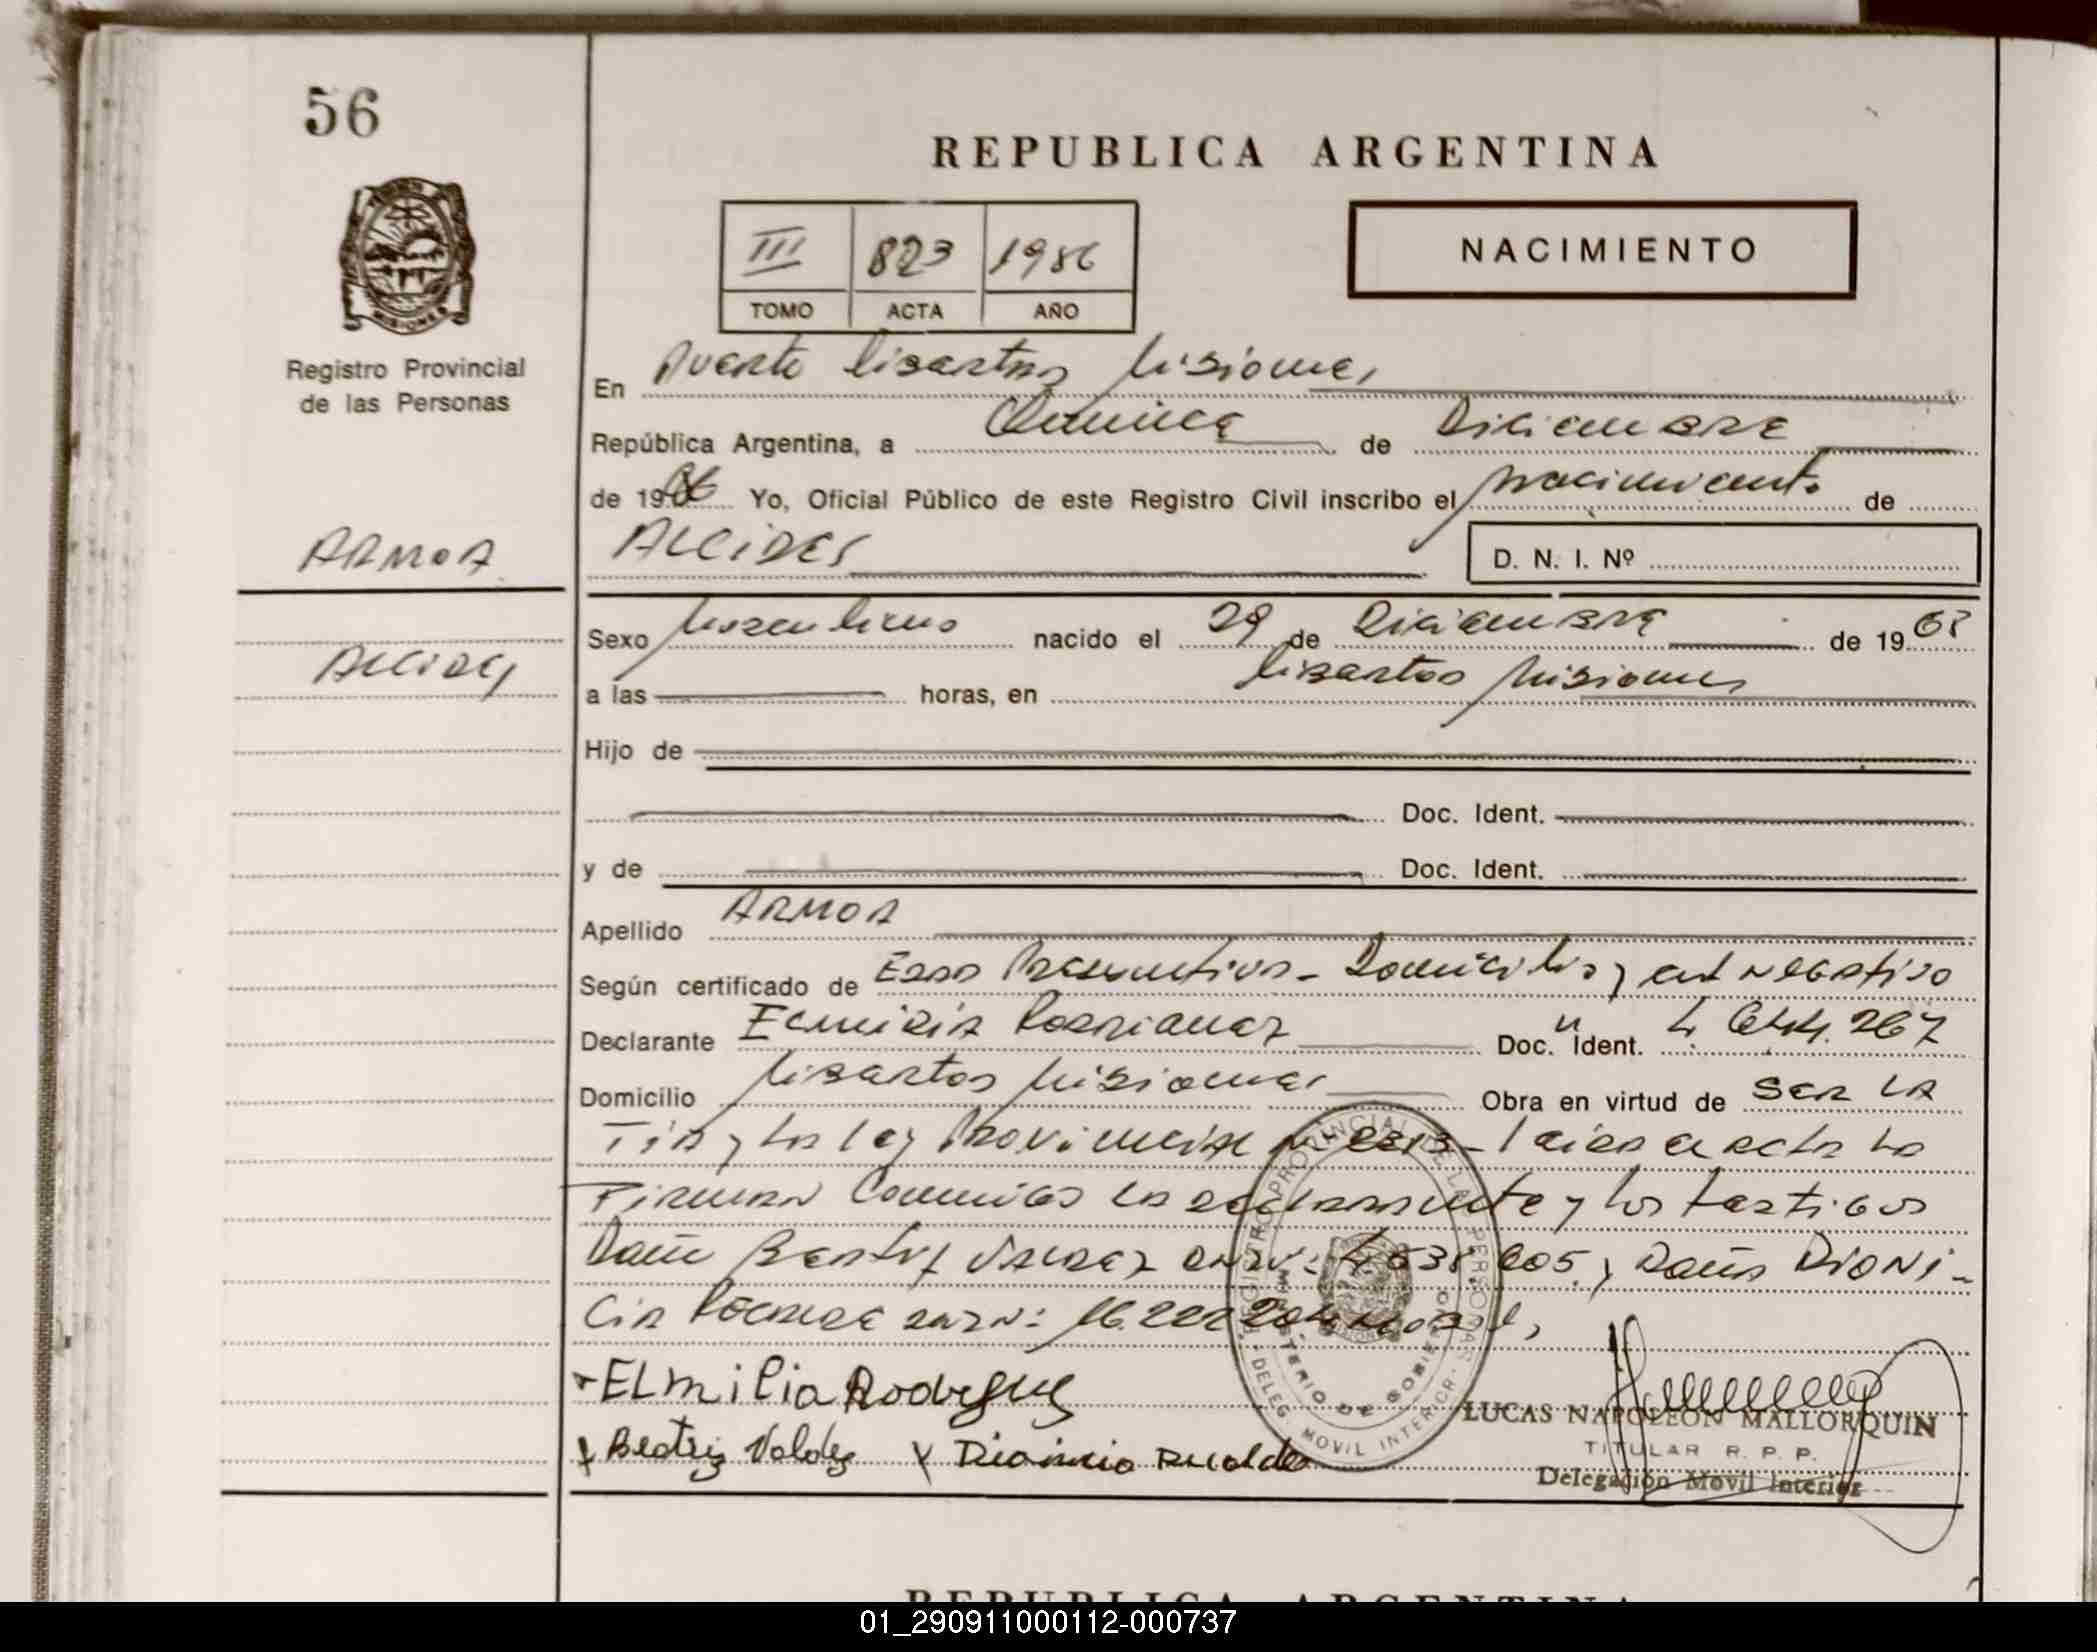 56
REPUBLICA ARGENTINA
III 823 1986
TOMO ACTA AÑO
NACIMIENTO
MISIONES
Registro Provincial
de las Personas
En Puerto Libertad, Misiones,
República Argentina, a Quince de Diciembre
de 1986 Yo, Oficial Público de este Registro Civil inscribo el nacimiento de
ARMOA
ALCIDES
D. N. I. Nº
Sexo Masculino nacido el 29 de Diciembre de 19
Alcides
a las horas, en Libertad Misiones
Hijo de
Doc. Ident.
y de Doc. Ident.
Apellido ARMOA
Según certificado de Edad Presuntiva - Domicilio y cert negativo
Declarante Rodriguez Doc. Ident. 4.644.267
Domicilio Libertad Misiones Obra en virtud de SER LA
TIA y la ley Provincial Nº - Leida el acta La
Firman Conmigo la declarante y los testigos
Doña Beatriz Valdez DNI Nº: 005 y Doña DIONI-
Cia DNI Nº:
ELmilia Rodrgue
x Beatriz Valdez x
REGISTRO PROVINCIAL DE LAS PERSONAS
MINISTERIO DE GOBIERNO
DELEG. MOVIL INTERIOR
LUCAS NAPOLEON MALLORQUIN
TITULAR R. P. P.
Delegación Movil Interior
REPUBLICA ARGENTINA
01_290911000112-000737